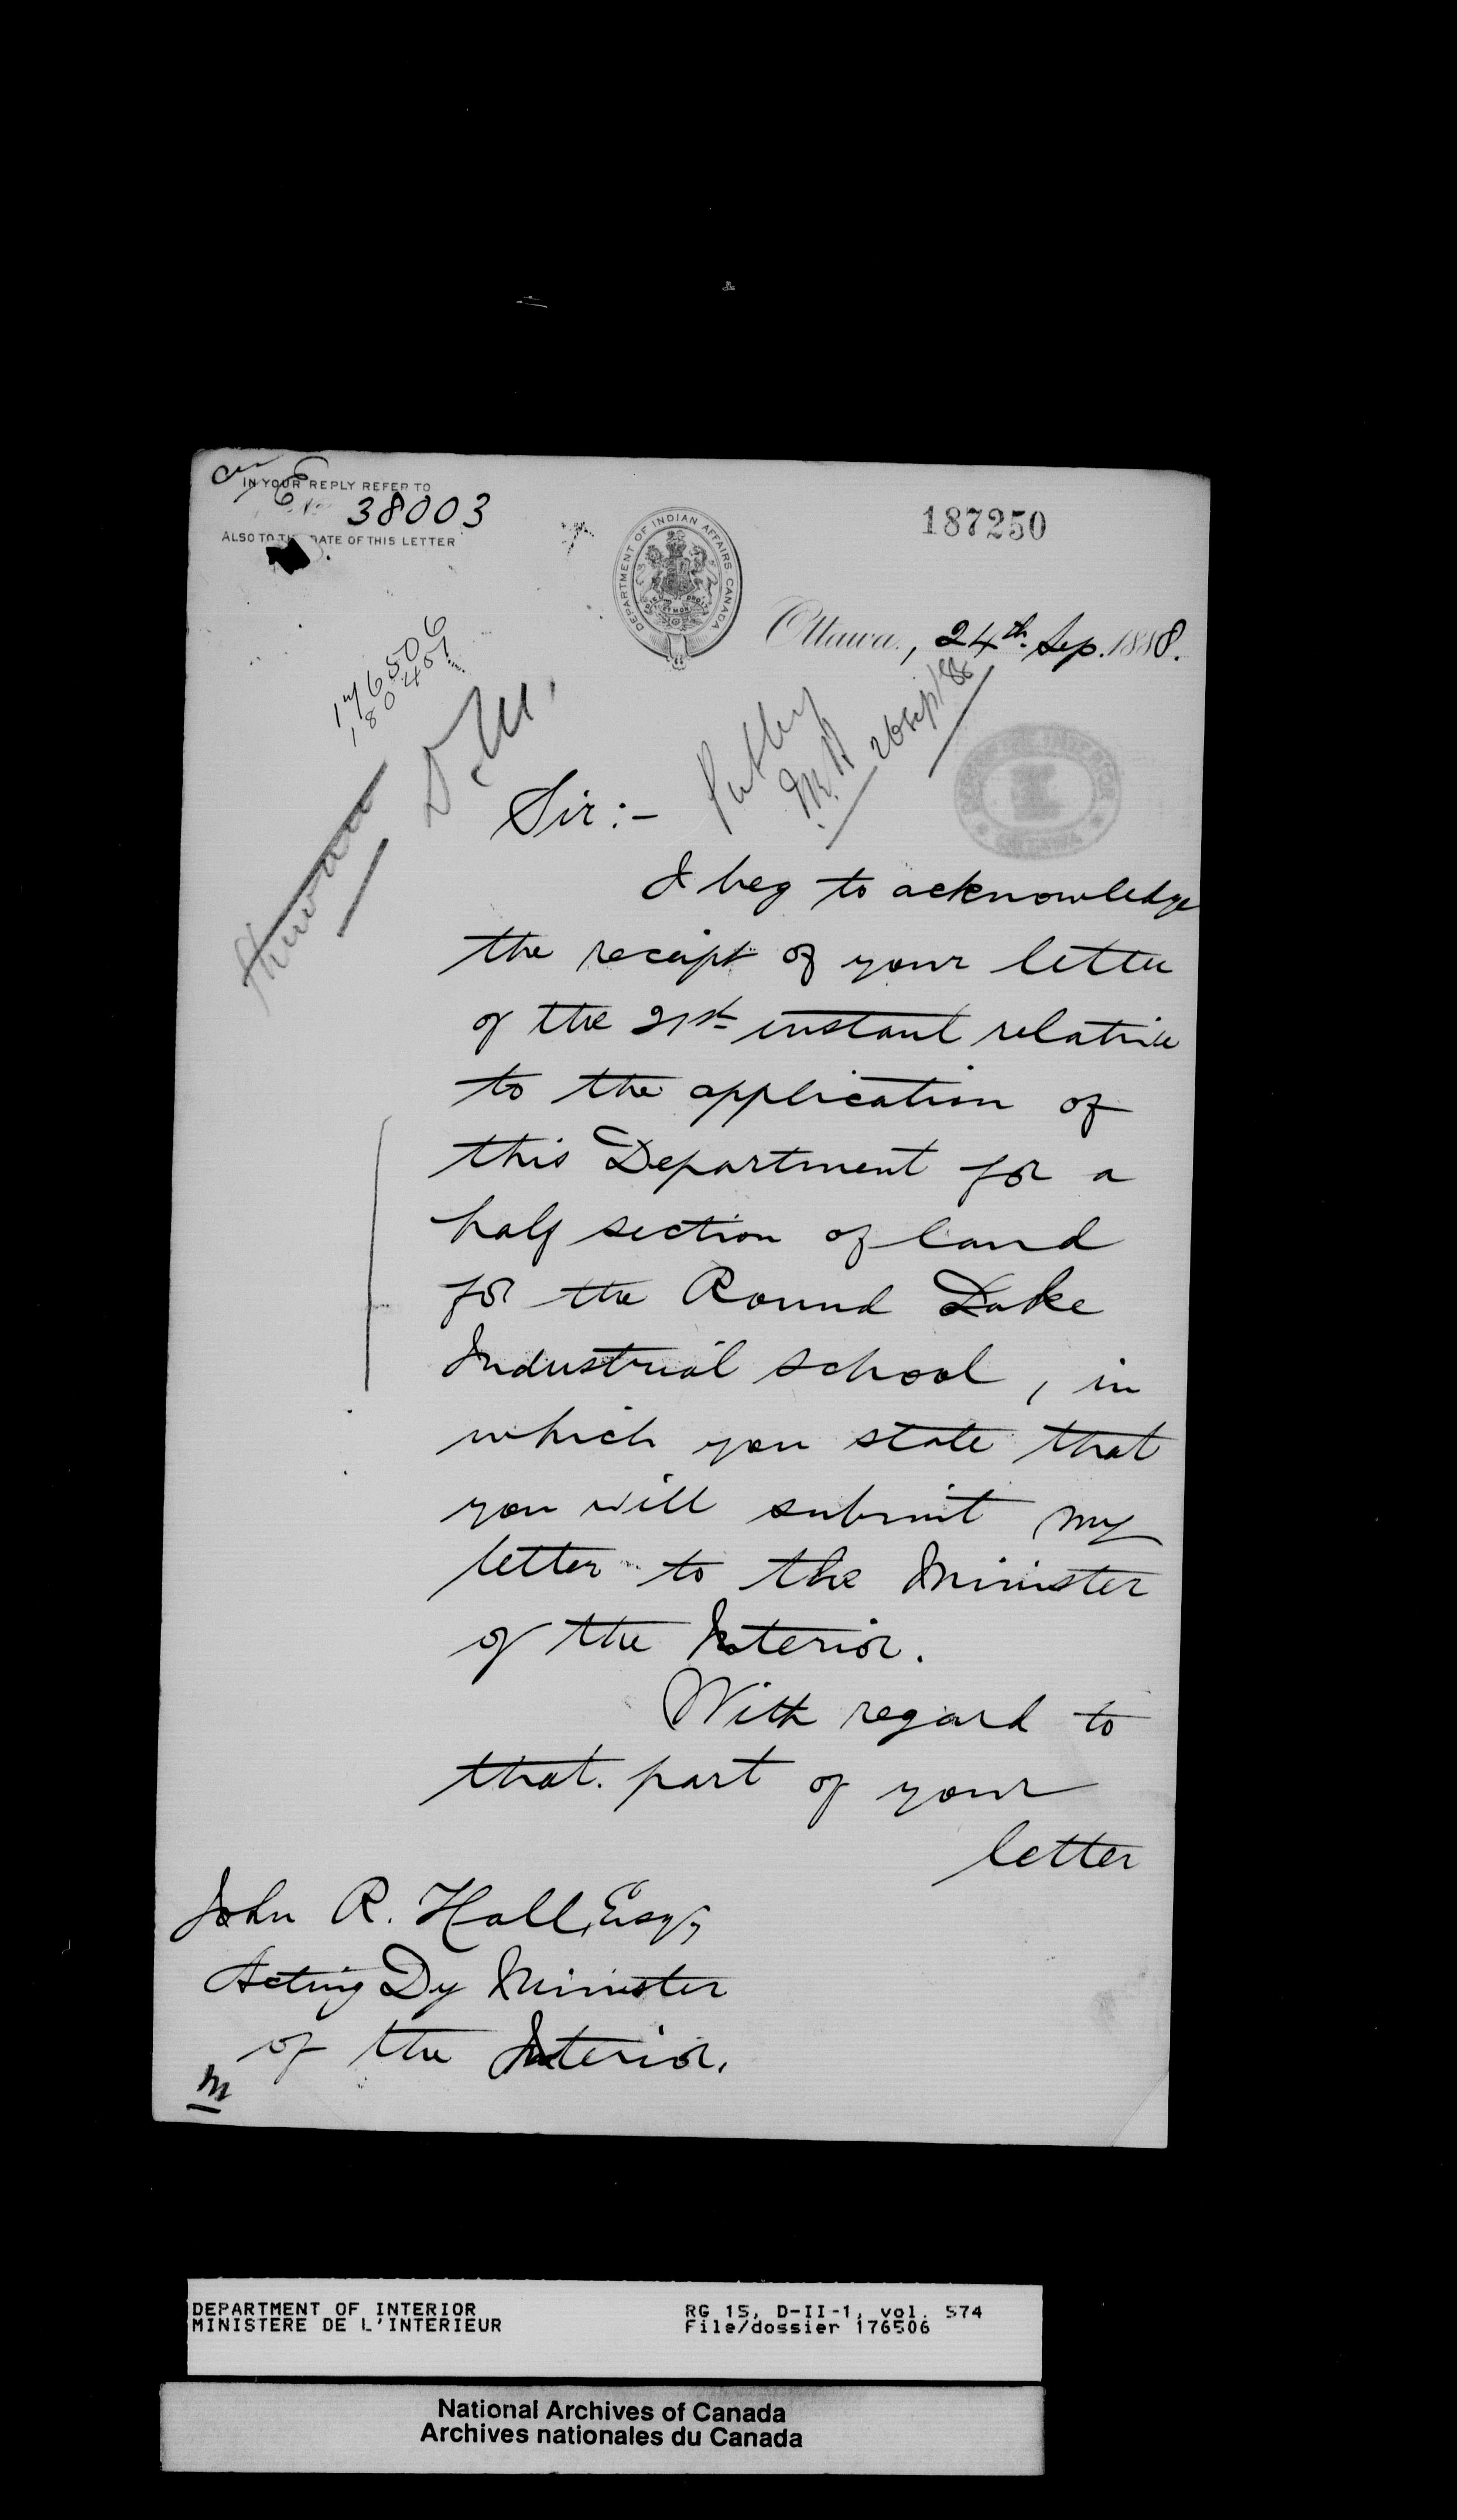 IN YOUR REPLY REFER TO
No 38003
ALSO TO THE DATE OF THIS LETTER
187250
DEPARTMENT OF INDIAN AFFAIRS CANADA
Ottawa, 24th Sep. 1888.
176506
180451
26 Sept 88
Sir:-
I beg to acknowledge
the receipt of your letter
of the 21st instant relative
to the application of
this Department for a
half section of land
for the Round Lake
Industrial school, in
which you state that
you will submit my
letter to the Minister
of the Interior.
With regard to
that part of your
letter
John R. Hall, Esqr,
Acting Dy Minister
of the Interior.
M
DEPARTMENT OF INTERIOR
MINISTERE DE L'INTERIEUR
RG 15, D-II-1, vol. 574
File/dossier 176506
National Archives of Canada
Archives nationales du Canada